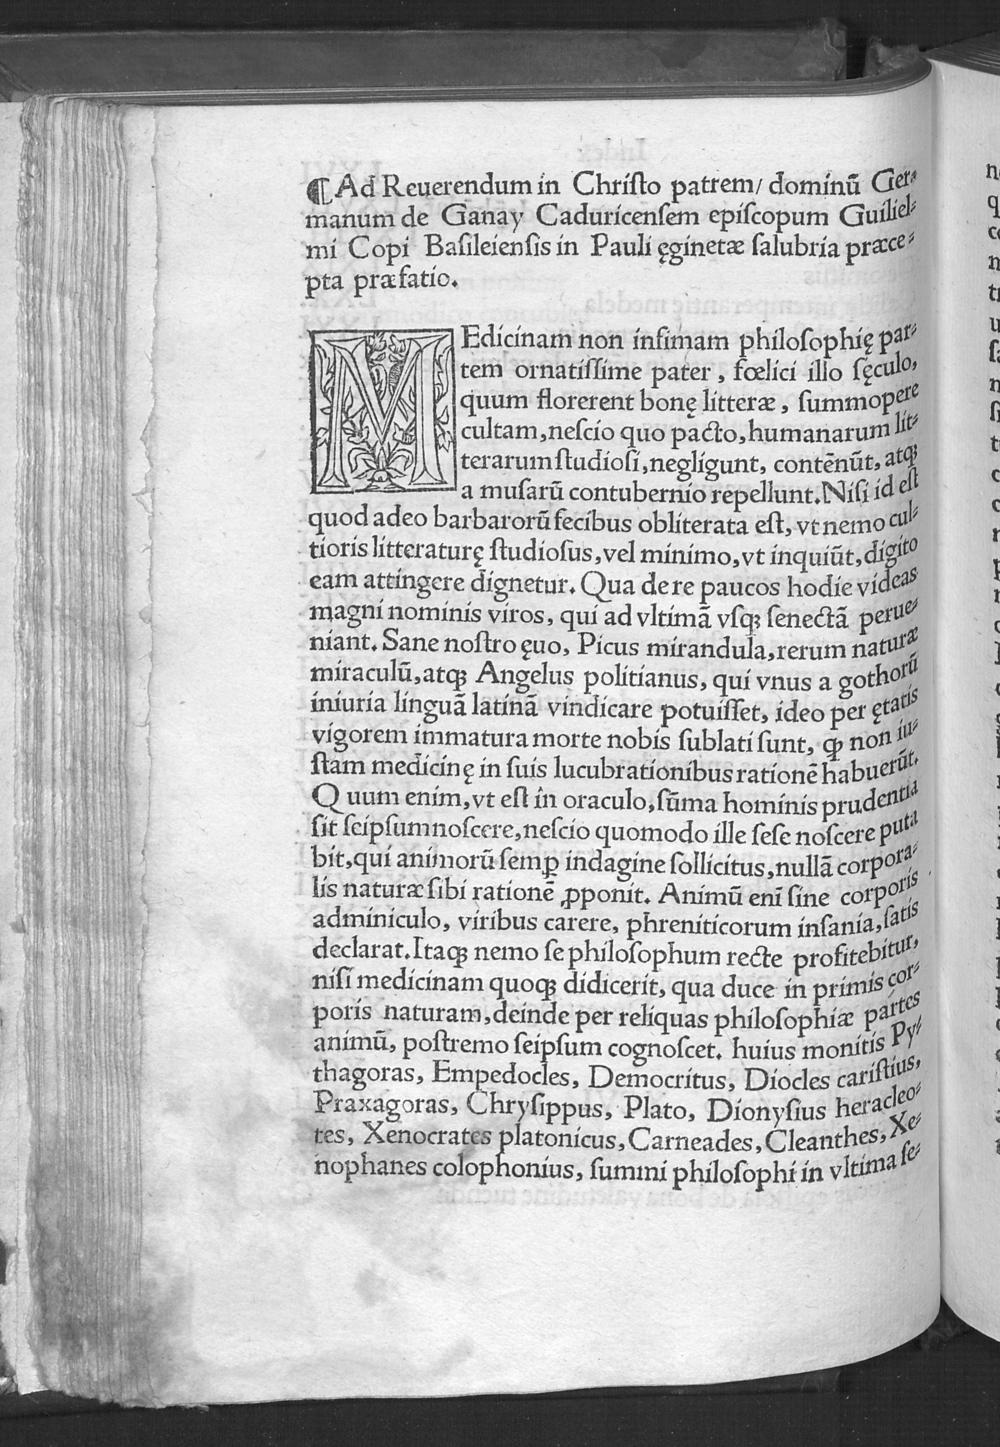 ¶Ad Reuerendum in Chriſto patrem/ dominū Ger⸗
manum de Ganay Caduricenſem epiſcopum Guiliel⸗
mi Copi Baſileienſis in Pauli ęginetæ ſalubria præce⸗
pta præfatio.
MEdicinam non infimam philoſophię par⸗
tem ornatiſſime pater, fœlici illo ſęculo,
quum florerent bonę litteræ, ſummopere
cultam, neſcio quo pacto, humanarum lit⸗
terarum ſtudioſi, negligunt, contēnūt, atqꝫ
a muſarū contubernio repellunt. Niſi id eſt
quod adeo barbarorū fecibus obliterata eſt, vt nemo cul⸗
tioris litteraturę ſtudioſus, vel minimo, vt inquiūt, digito
eam attingere dignetur. Qua de re paucos hodie videas
magni nominis viros, qui ad vltimā vſqꝫ ſenectā perue⸗
niant. Sane noſtro ęuo, Picus mirandula, rerum naturæ
miraculū, atqꝫ Angelus politianus, qui vnus a gothorū
iniuria linguā latinā vindicare potuiſſet, ideo per ętatis
vigorem immatura morte nobis ſublati ſunt, ꝙ non iu⸗
ſtam medicinę in ſuis lucubrationibus rationē habuerūt.
Quum enim, vt eſt in oraculo, ſūma hominis prudentia
ſit ſeipſum noſcere, neſcio quomodo ille ſeſe noſcere puta
bit, qui animorū ſemꝑ indagine ſollicitus, nullā corpora⸗
lis naturæ ſibi rationē ꝓponit. Animū enī ſine corporis
adminiculo, viribus carere, phreniticorum inſania, ſatis
declarat. Itaqꝫ nemo ſe philoſophum recte profitebitur,
niſi medicinam quoqꝫ didicerit, qua duce in primis cor⸗
poris naturam, deinde per reliquas philoſophiæ partes
animū, poſtremo ſeipſum cognoſcet. huius monitis Py⸗
thagoras, Empedocles, Democritus, Diocles cariſtius,
Praxagoras, Chryſippus, Plato, Dionyſius heracleo⸗
tes, Xenocrates platonicus, Carneades, Cleanthes, Xe⸗
nophanes colophonius, ſummi philoſophi in vltima ſe⸗